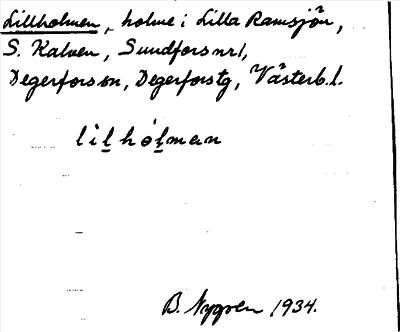 Lillholmen, holme i Lilla Ramsjön,
S. Kalven, Sundfors nr 1,
Degerfors sn, Degerfors tg, Västerb. l.
lilhólman
B. Nygren 1934.